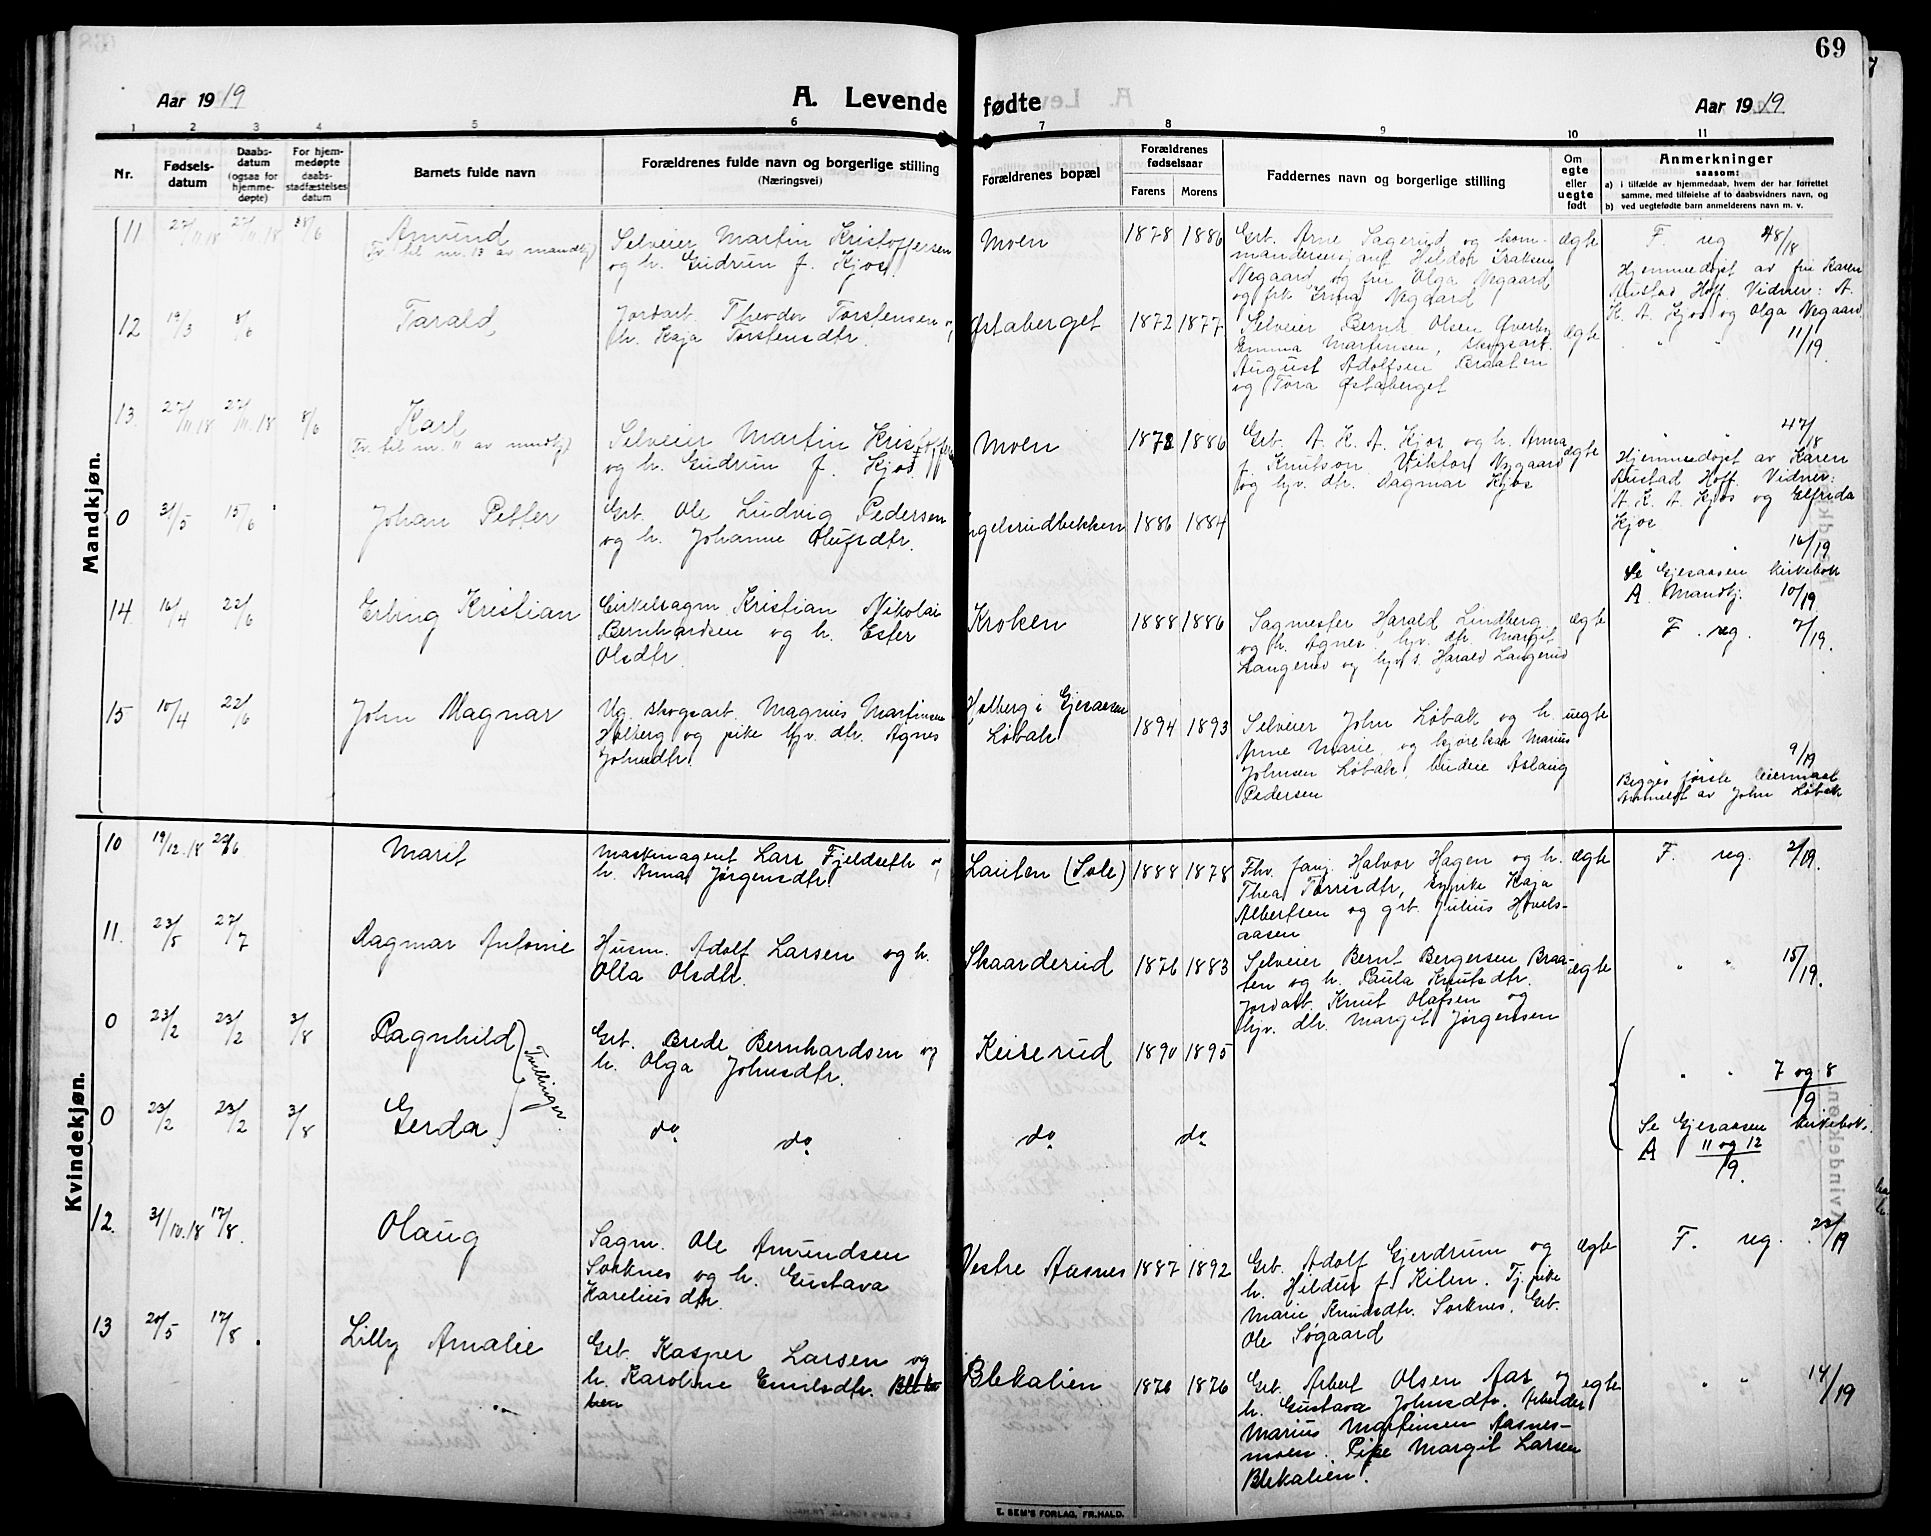 69
Aar 1919
A. Levende fødte
Aar 1919
1 2 3 4 5 6 7 8 9 10 11
Nr.
Fødsels-
datum
Daabs-
datum
(ogsaa for
hjemme-
døpte)
For hjem-
medøpte
daabs-
stadfæstelses
datum
Barnets fulde navn
Forældrenes fulde navn og borgerlige stilling
(Næringsvei)
Forældrenes bopæl
Forældrenes
fødselsaar
Farens Morens
Faddernes navn og borgerlige stilling
Om
egte
eller
uegte
født
Anmerkninger
saasom:
a) i tilfælde av hjemmedaab, hvem der har forrettet
samme, med tilføielse af to daabsvidners navn, og
b) ved uegtefødte barn anmelderens navn m. v.
Mandkjøn.
11 27/11.18 27/11.18 8/6
Amund
Tv. til nr. 13 av mandkj
Selveier Martin Kristoffersen
og h. Gudrun f. Kjos.
Moen 1878 1886
Grb. Arne Sagerud og kom-
mandersersjant Heldor Isaksen
Negaard og fru Olga Negaard
og frk. Erna Negaard
ægte
F. reg 48/18
Hjemmedøpt av fru Karen
Austad Hoff. Vidner: A.
K. A. Kjos og Olga Negaard
12 19/3 8/6
Tarald
Jordarb. Theodor Torstensen o,
h. Kaja Torstensdtr.
Østaberget 1872 1877
Selveier Bernt Olsen Øverby
Emma Martinsen, skogsarb.
August Adolfsen Braaten
og Tora Østaberget
ægte
" " 11/19.
13. 27/11.18 27/11.18 8/6
Karl
Tv. til nr. 11 av mandkj
Selveier Martin Kristoffersen
og h. Gudrun f. Kjos.
Moen 1878 1886
Grb. A. K. A. Kjos og h. Anna
f. Knutson. Viktor Nygaard
og hjv. dtr. Dagmar Kjos
ægte
" " 47/18
Hjemmedøpt av Karen
Austad Hoff. Vidner:
A. K. A. Kjos og Elfrida
Kjos
0 31/5 15/6
Johan Petter
Grb. Ole Ludvig Pedersen
og h. Johanne Olufsdtr.
Ingelsrudbekken 1886 1884
" " 16/19
Se Gjesaasen kirkebok
A Mandkj. 10/19
14 16/4 22/6
Erling Kristian
Cirkelsagm. Kristian Nikolai
Bernhardsen og h. Ester
Olsdtr.
Kroken 1888 1886
Sagmester Harald Lindberg
og h. Agnes, hjv. dtr. Margit
Langerud og hjv. s. Harald Langerud
ægte
F. reg. 7/19.
15 10/4 22/6
John Magnar
Ug. skogsarb. Magnus Martinsen
Holberg og pike hjv. dtr. Agnes
Johnsdtr.
Holberg i Gjesaasen
Løbak
1894 1893
Selveier John Løbak og h.
Anne Marie, og kjørekar Marius
Johnsen Løbak, budeie Aslaug
Pedersen
uegte
" " 9/19
Begges første leiermaal
Anmeldt av John Løbak
Kvindekjøn.
10 19/12.18 22/6
Marit
Maskinagent Lars Fjeldseth o,
h. Anna Jørgensdtr
Lauten (Sole) 1888 1878
Fhv. fanj. Halvor Hagen og h.
Thea Torrisdtr, sypike Kaja
Albertsen og grb. Julius Hovels-
aasen
ægte
F. reg. 2/19.
11. 23/5 27/7
Dagmar Antonie
Husm. Adolf Larsen og h.
Olla Olsdtr.
Skaarderud 1876 1883
Selveier Bernt Bergersen Braa-
ten og h. Paula Knutsdtr.
Jordarb. Knut Olafsen og
hjv. dtr. Margit Jørgensen
ægte
" " 15/19.
0 23/2 23/2 3/8
Ragnhild
Tvillinger.
Grb. Brede Bernhardsen og
h. Olga Johnsdtr.
Keiserud 1890 1895
" " 7 og 8/19
0 23/2 23/2 3/8
Gerda
do do
do do
Se Gjesaasen kirkebok.
A 11 og 12/19.
12. 31/10.18 17/8.
Olaug
Sagm. Ole Amundsen
Sorknes og h. Gustava
Kareliusdtr.
Vestre Aasnes 1887 1892
Grb. Adolf Gjerdrum og
h. Hildur f. Kilen. Tj. pike
Marie Knudsdtr. Sorknes. Grb.
Ole Søgaard
ægte
F. reg. 23/19
13 20/5 17/8.
Lilly Amalie
Grb. Kasper Larsen og
h. Karoline Emilsdtr.
Blekalien 1870 1876
Grb. Arbert Olsen Aas og
h. Gustava Johnsdtr. Arbeider
Marius Martinsen Aasnes-
moen. Pike Margit Larsen
Blekalien.
egte
" " 14/19
E. SEM'S FORLAG, FR.HALD.